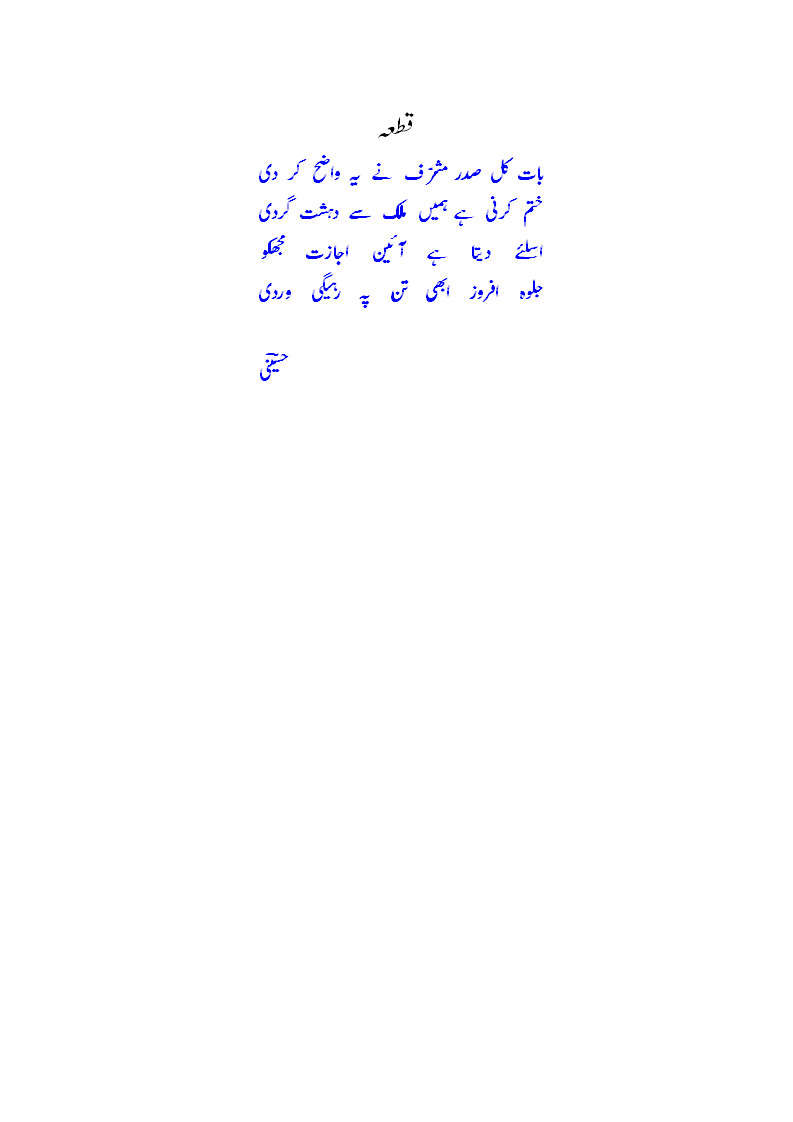 قطعہ
بات کل صدر مشرّف نے یہ واضح کر دی
ختم کرنی ہے ہمیں ملک سے دہشت گردی
اسلئے دیتا ہے آئین اجازت مجھکو
جلوہ افروز ابھی تن پہ رہیگی وردی
حسینؔی